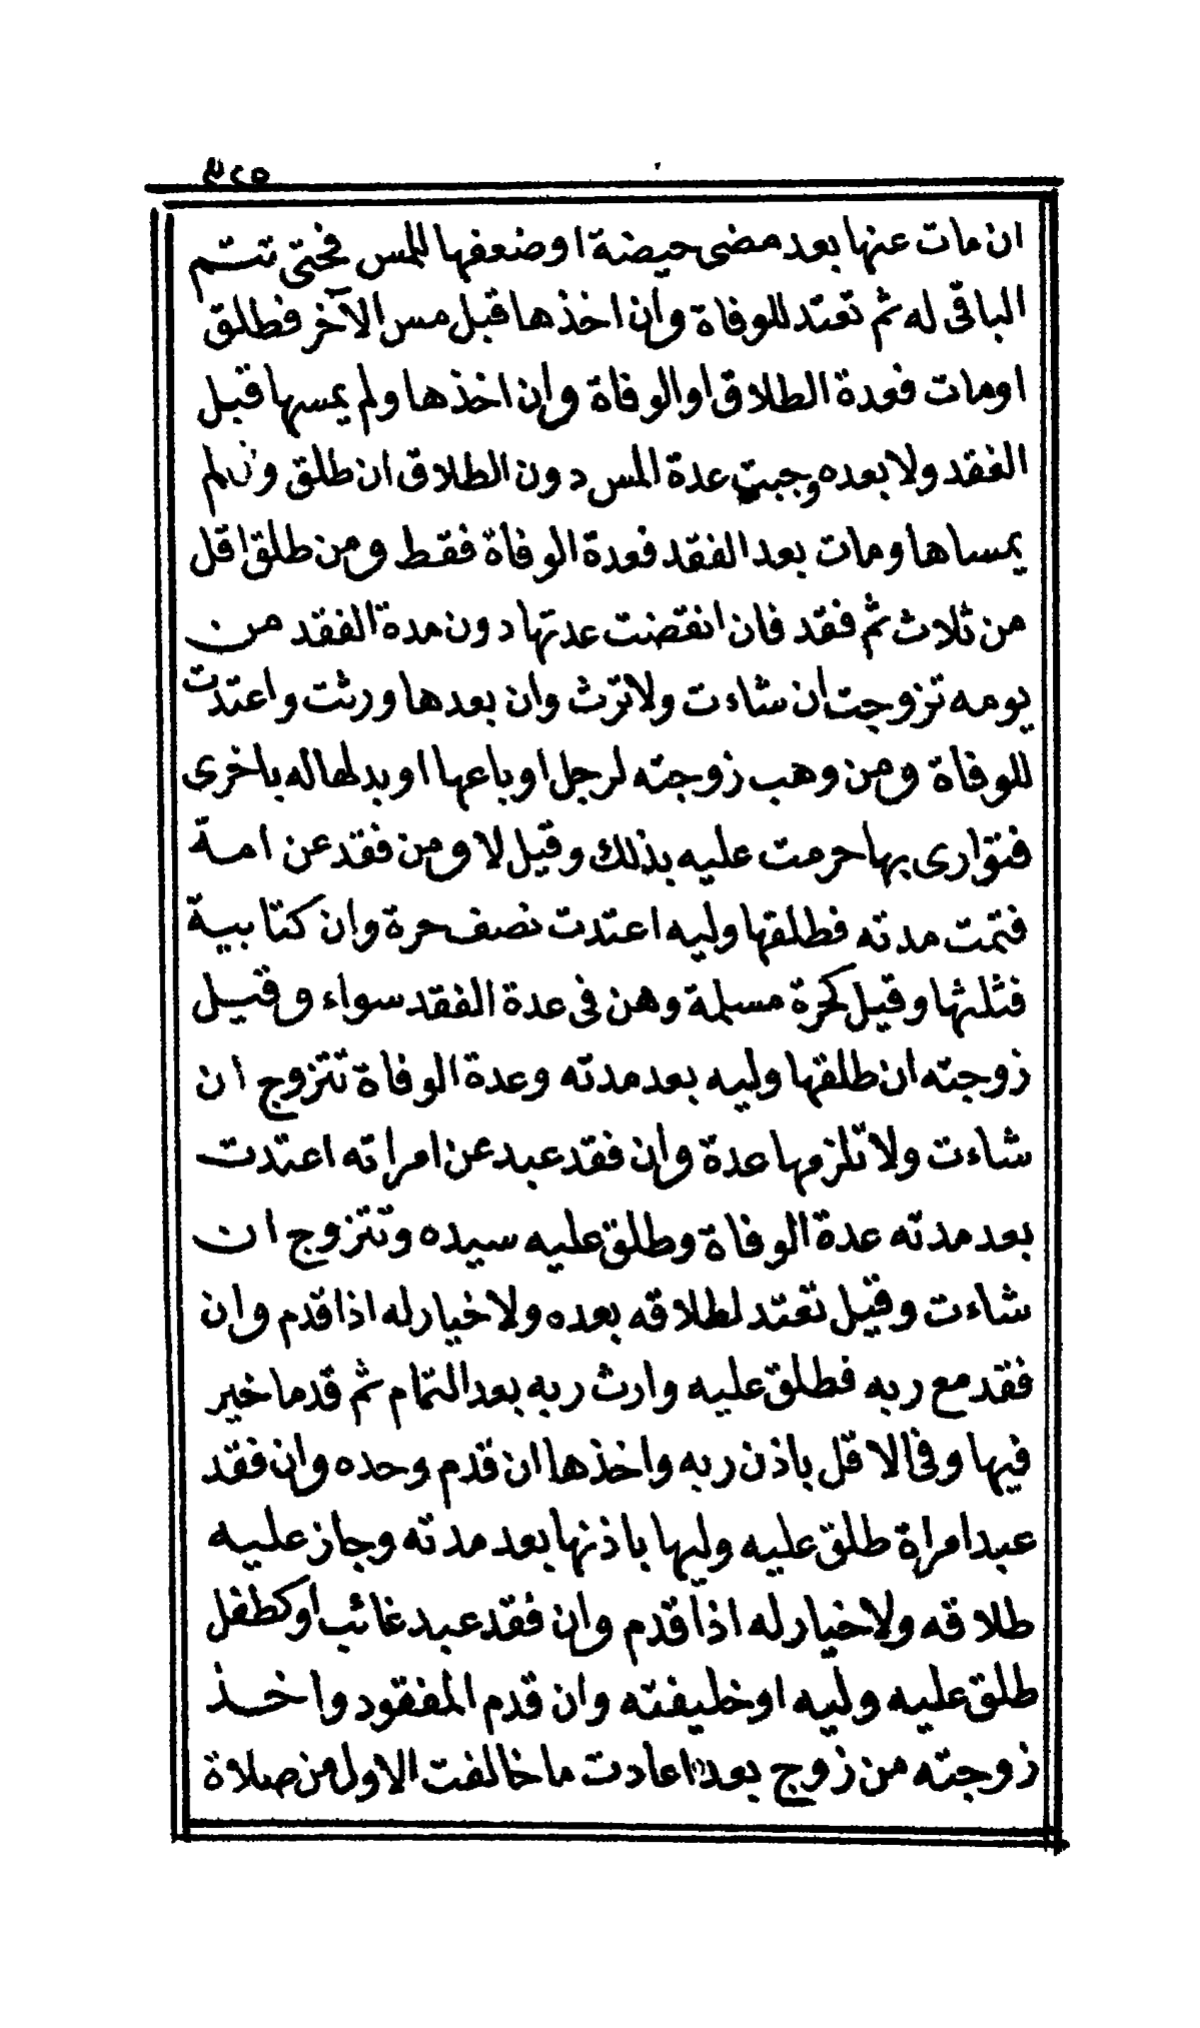 ان مات عنها بعد مضى حيضة او ضعفها للمس فحتى تتم
الباقى له ثم تعتد للوفاة وان اخذها قبل مس الآخر فطلق
اومات فعدة الطلاق او الوفاة وان اخذها ولم يمسها قبل
الفقد ولا بعده وجبت عدة المس دون الطلاق ان طلق وان لم
يمساها ومات بعد الفقد فعدة الوفاة فقط ومن طلق اقل
من ثلاث ثم فقد فان انقضت عدتها دون مدة الفقد من
يومه تزوجت ان شاءت ولا ترث وان بعدها ورثت واعتدت
للوفاة ومن وهب زوجته لرجل او باعها او بدلها له باخرى
فتوارى بها حرمت عليه بذلك وقيل لا ومن فقد عن امة
فتمت مدته فطلقها وليه اعتدت نصف حرة وان كتابية
فثلثها وقيل كحرة مسلمة وهن فى عدة الفقد سواء وقيل
زوجته ان طلقها وليه بعد مدته وعدة الوفاة تتزوج ان
شاءت ولا تلزمها عدة وان فقد عبد عن امراته اعتدت
بعد مدته عدة الوفاة وطلق عليه سيده وتتزوج ان
شاءت وقيل تعتد لطلاقه بعده ولا خيار له اذا قدم وان
فقد مع ربه فطلق عليه وارث ربه بعد التمام ثم قدما خير
فيها وفى الاقل باذن ربه واخذها ان قدم وحده وان فقد
عبد امراة طلق عليه وليها باذنها بعد مدته وجاز عليه
طلاقه ولا خيار له اذا قدم وان فقد عبد غائب او كطفل
طلق عليه وليه او خليفته وان قدم المفقود واخذ
زوجته من زوج بعد اعادت ما خالفت الاول من صلاة